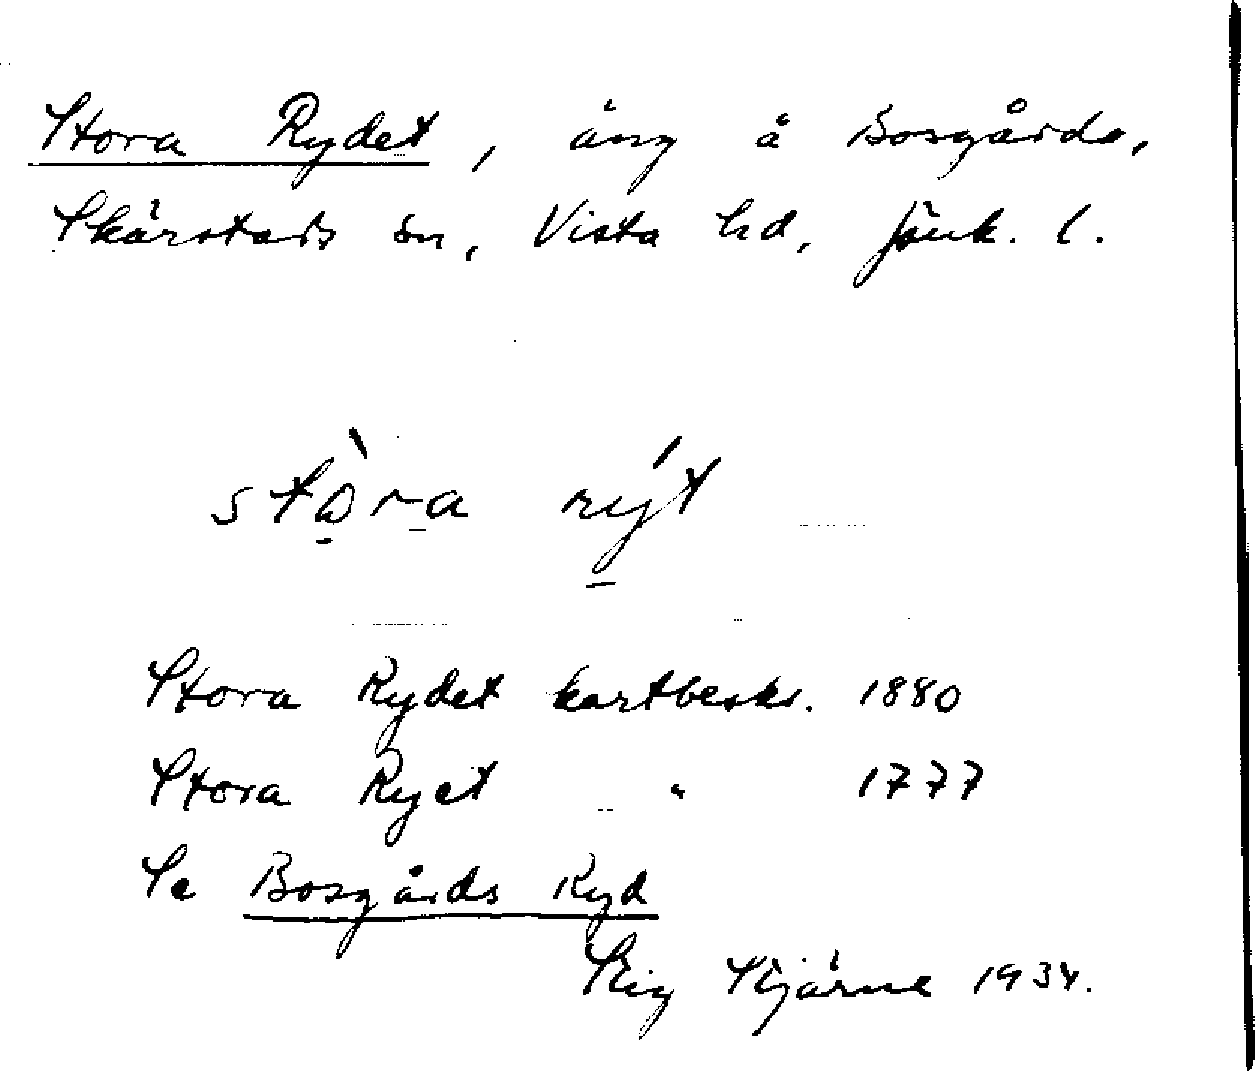 Stora Rydet, äng å Bosgårds,
Skärstads sn, Vista hd, Jönk. l.
stòra rýt
Stora Rydet kartbeskr. 1880
Stora Ryet " 1777
Se Bosgårds Ryd
Stig Stjärne 1934.